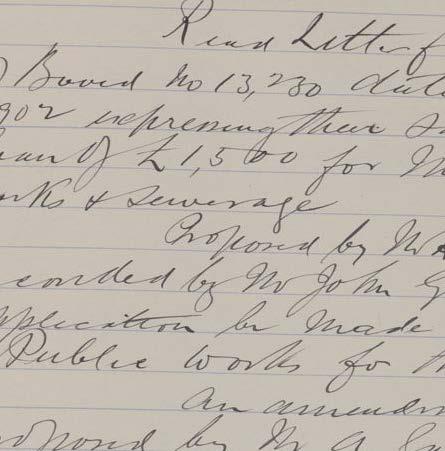 Read Letter f
Board No 13,230 date
902 expressing their S
oan of £1,500 for M
orks & Sewerage
Proposed by Mr
conded by Mr John G
pplication be made
Public Works for th
An amendm
oposed by Mr A